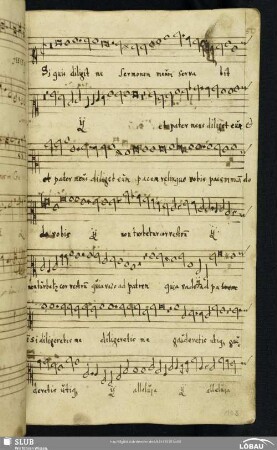 Si quis diligit me sermonem meum serva bit
ij et pater meus diliget eum et
et pater meus diliget eum pacem relinquo vobis pacem meam do
do vobis ij non turbetur cor vestrum ij
non turbetur cor vestrum quia vado ad patrem quia vado ad patrem
si diligeretis me diligeretis me gauderetis utiq gau
deretis utiq ij alleluja ij alleluja
SLUB
LÖBAU